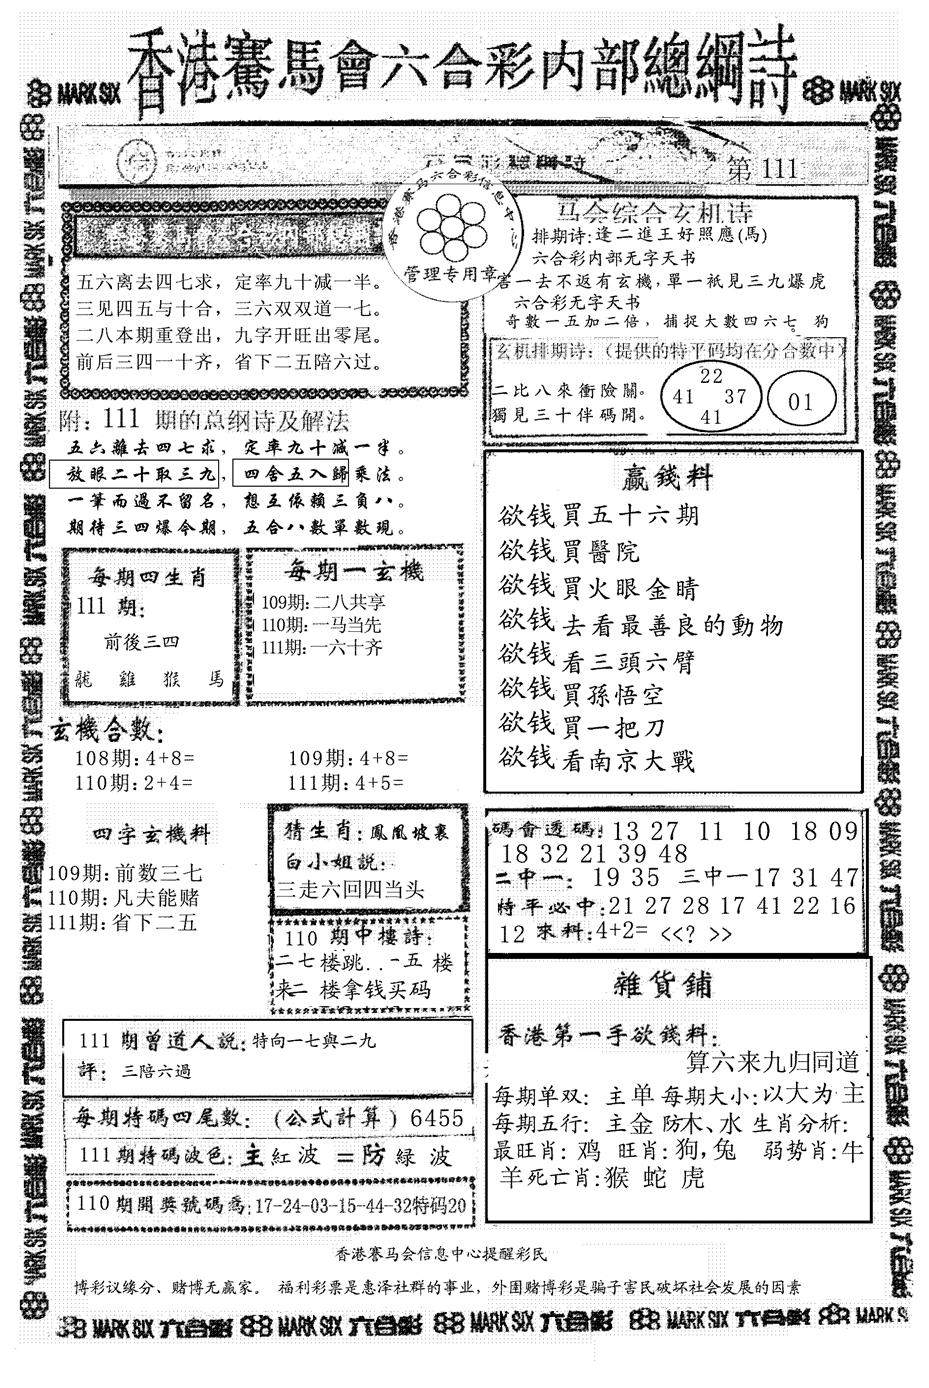 香港賽馬會六合彩内部總綱詩
MARK SIX
MARK SIX
第 111
香港赛马六合彩信息中
管理专用章
五六离去四七求，定率九十减一半。
三见四五与十合，三六双双道一七。
二八本期重登出，九字开旺出零尾。
前后三四一十齐，省下二五陪六过。
马会综合玄机诗
排期诗:逢二進王好照應(馬)
六合彩内部无字天书
害一去不返有玄機,單一衹見三九爆虎
六合彩无字天书
奇數一五加二倍，捕捉大數四六七。狗
玄机排期诗:（提供的特平码均在分合數中）
二比八來衝險關。
獨見三十伴碼開。
22
41 37
41
01
附: 111 期的总纲诗及解法
五六離去四七求，定率九十减一半。
放眼二十取三九，四舍五入歸乘法。
一筆而過不留名，想互依賴三負八。
期待三四爆今期，五合八數單數現。
每期四生肖
111 期:
前後三四
龍 雞 猴 馬
每期一玄機
109期:二八共享
110期:一马当先
111期:一六十齐
赢錢料
欲钱買五十六期
欲钱買醫院
欲钱買火眼金睛
欲钱去看最善良的動物
欲钱看三頭六臂
欲钱買孫悟空
欲钱買一把刀
欲钱看南京大戰
玄機合數:
108期:4+8= 109期:4+8=
110期:2+4= 111期:4+5=
四字玄機料
109期:前数三七
110期:凡夫能赌
111期:省下二五
猜生肖:鳳凰坡裏
白小姐説:
三走六回四当头
110 期中樓詩:
二七楼跳..一五 楼
来二 楼拿钱买码
碼會透碼:13 27 11 10 18 09
18 32 21 39 48
二中一: 19 35 三中一17 31 47
特平必中:21 27 28 17 41 22 16
12 來料:4+2= <<? >>
雜貨鋪
香港第一手欲錢料:
算六来九归同道
每期单双: 主单 每期大小:以大为主
每期五行: 主金 防木、水 生肖分析:
最旺肖: 鸡 旺肖:狗,兔 弱势肖:牛
羊 死亡肖:猴 蛇 虎
111 期曾道人説:特向一七與二九
評: 三陪六過
每期特碼四尾數: (公式計算) 6455
111期特碼波色:主紅波 =防 緑 波
110期開獎號碼爲:17-24-03-15-44-32特码20
香港赛马会信息中心提醒彩民
博彩议缘分、赌博无赢家。 福利彩票是惠泽社群的事业，外围赌博彩是骗子害民破坏社会发展的因素
MARK SIX 六合彩 MARK SIX 六合彩 MARK SIX 六合彩 MARK SIX 六合彩 MARK SIX